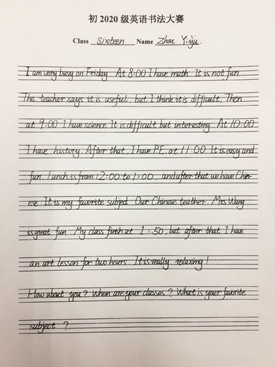 初 2020 级英语书法大赛
Class sixteen Name Zhou Yiyu
I am very busy on Friday. At 8:00 I have math. It is not fun.
The teacher says it is useful, but I think it is difficult. Then
at 9:00 I have science. It is difficult but interesting. At 10:00
I have history. After that, I have P.E. at 11:00. It is easy and
fun. Lunch is from 12:00 to 1:00, and after that we have Chin
ese. It is my favorite subject. Our Chinese teacher Mrs. Wang
is great fun. My class finish at 1:50, but after that I have
an art lesson for two hours. It is really relaxing!
How about you? When are your classes? What is your favorite
subject?